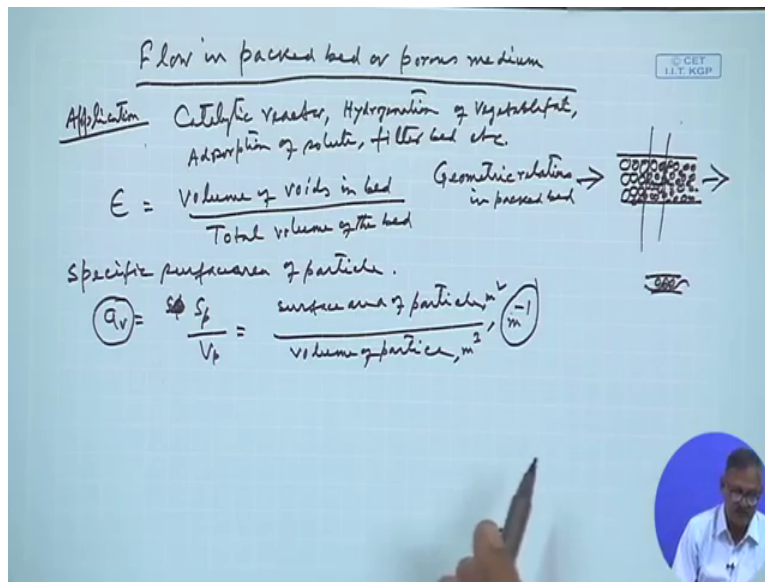 Flow in packed bed or porous medium
© CET
I.I.T. KGP
Application Catalytic reactor, Hydrogenation of vegetable fats,
Adsorption of solute, filter bed etc.
ϵ = Volume of voids in bed / Total volume of the bed
Geometric relations → →
in packed bed
Specific surface area of particle.
a_v = S_p / V_p = surface area of particle, m² / volume of particle, m³, m⁻¹